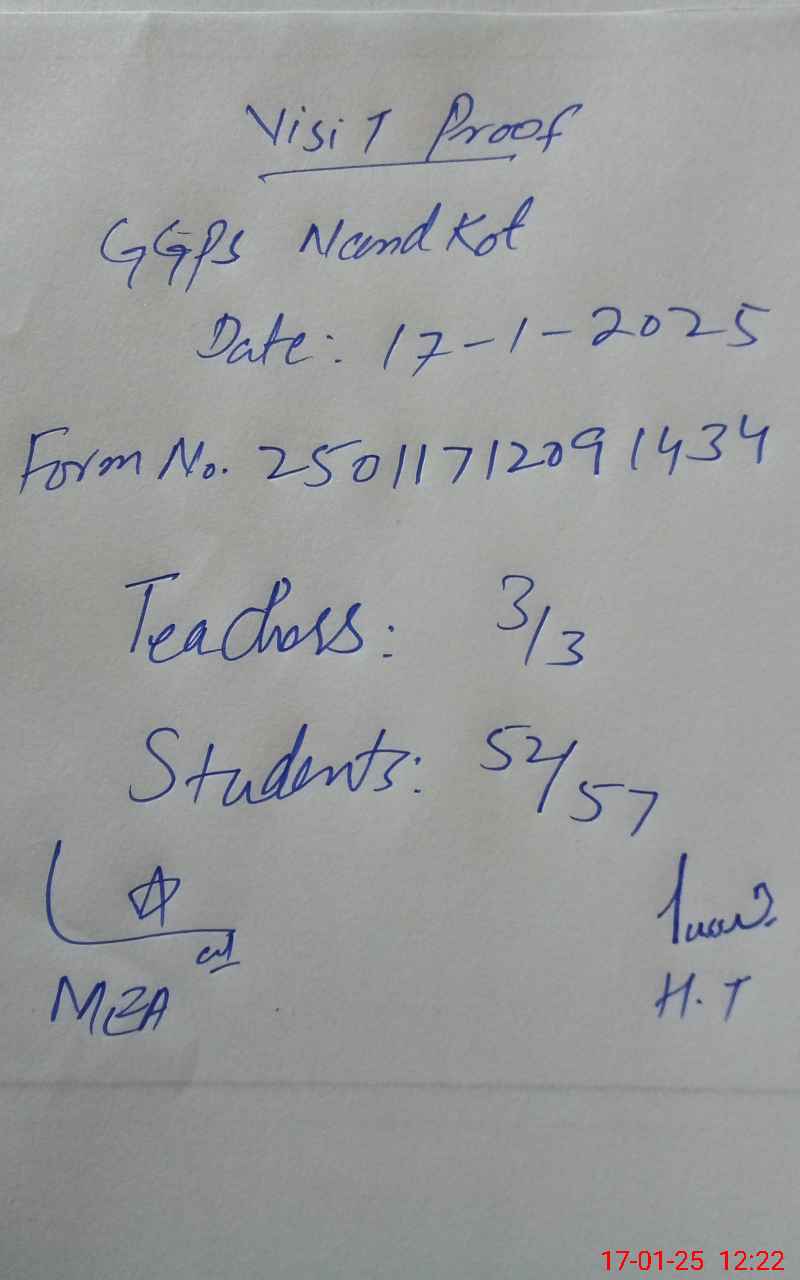 Visit Proof
GGPS Nand Kot
Date: 17-1-2025
Form No. 25011712091434
Teachers: 3/3
Students: 52/57
MEA
H.T
17-01-25 12:22